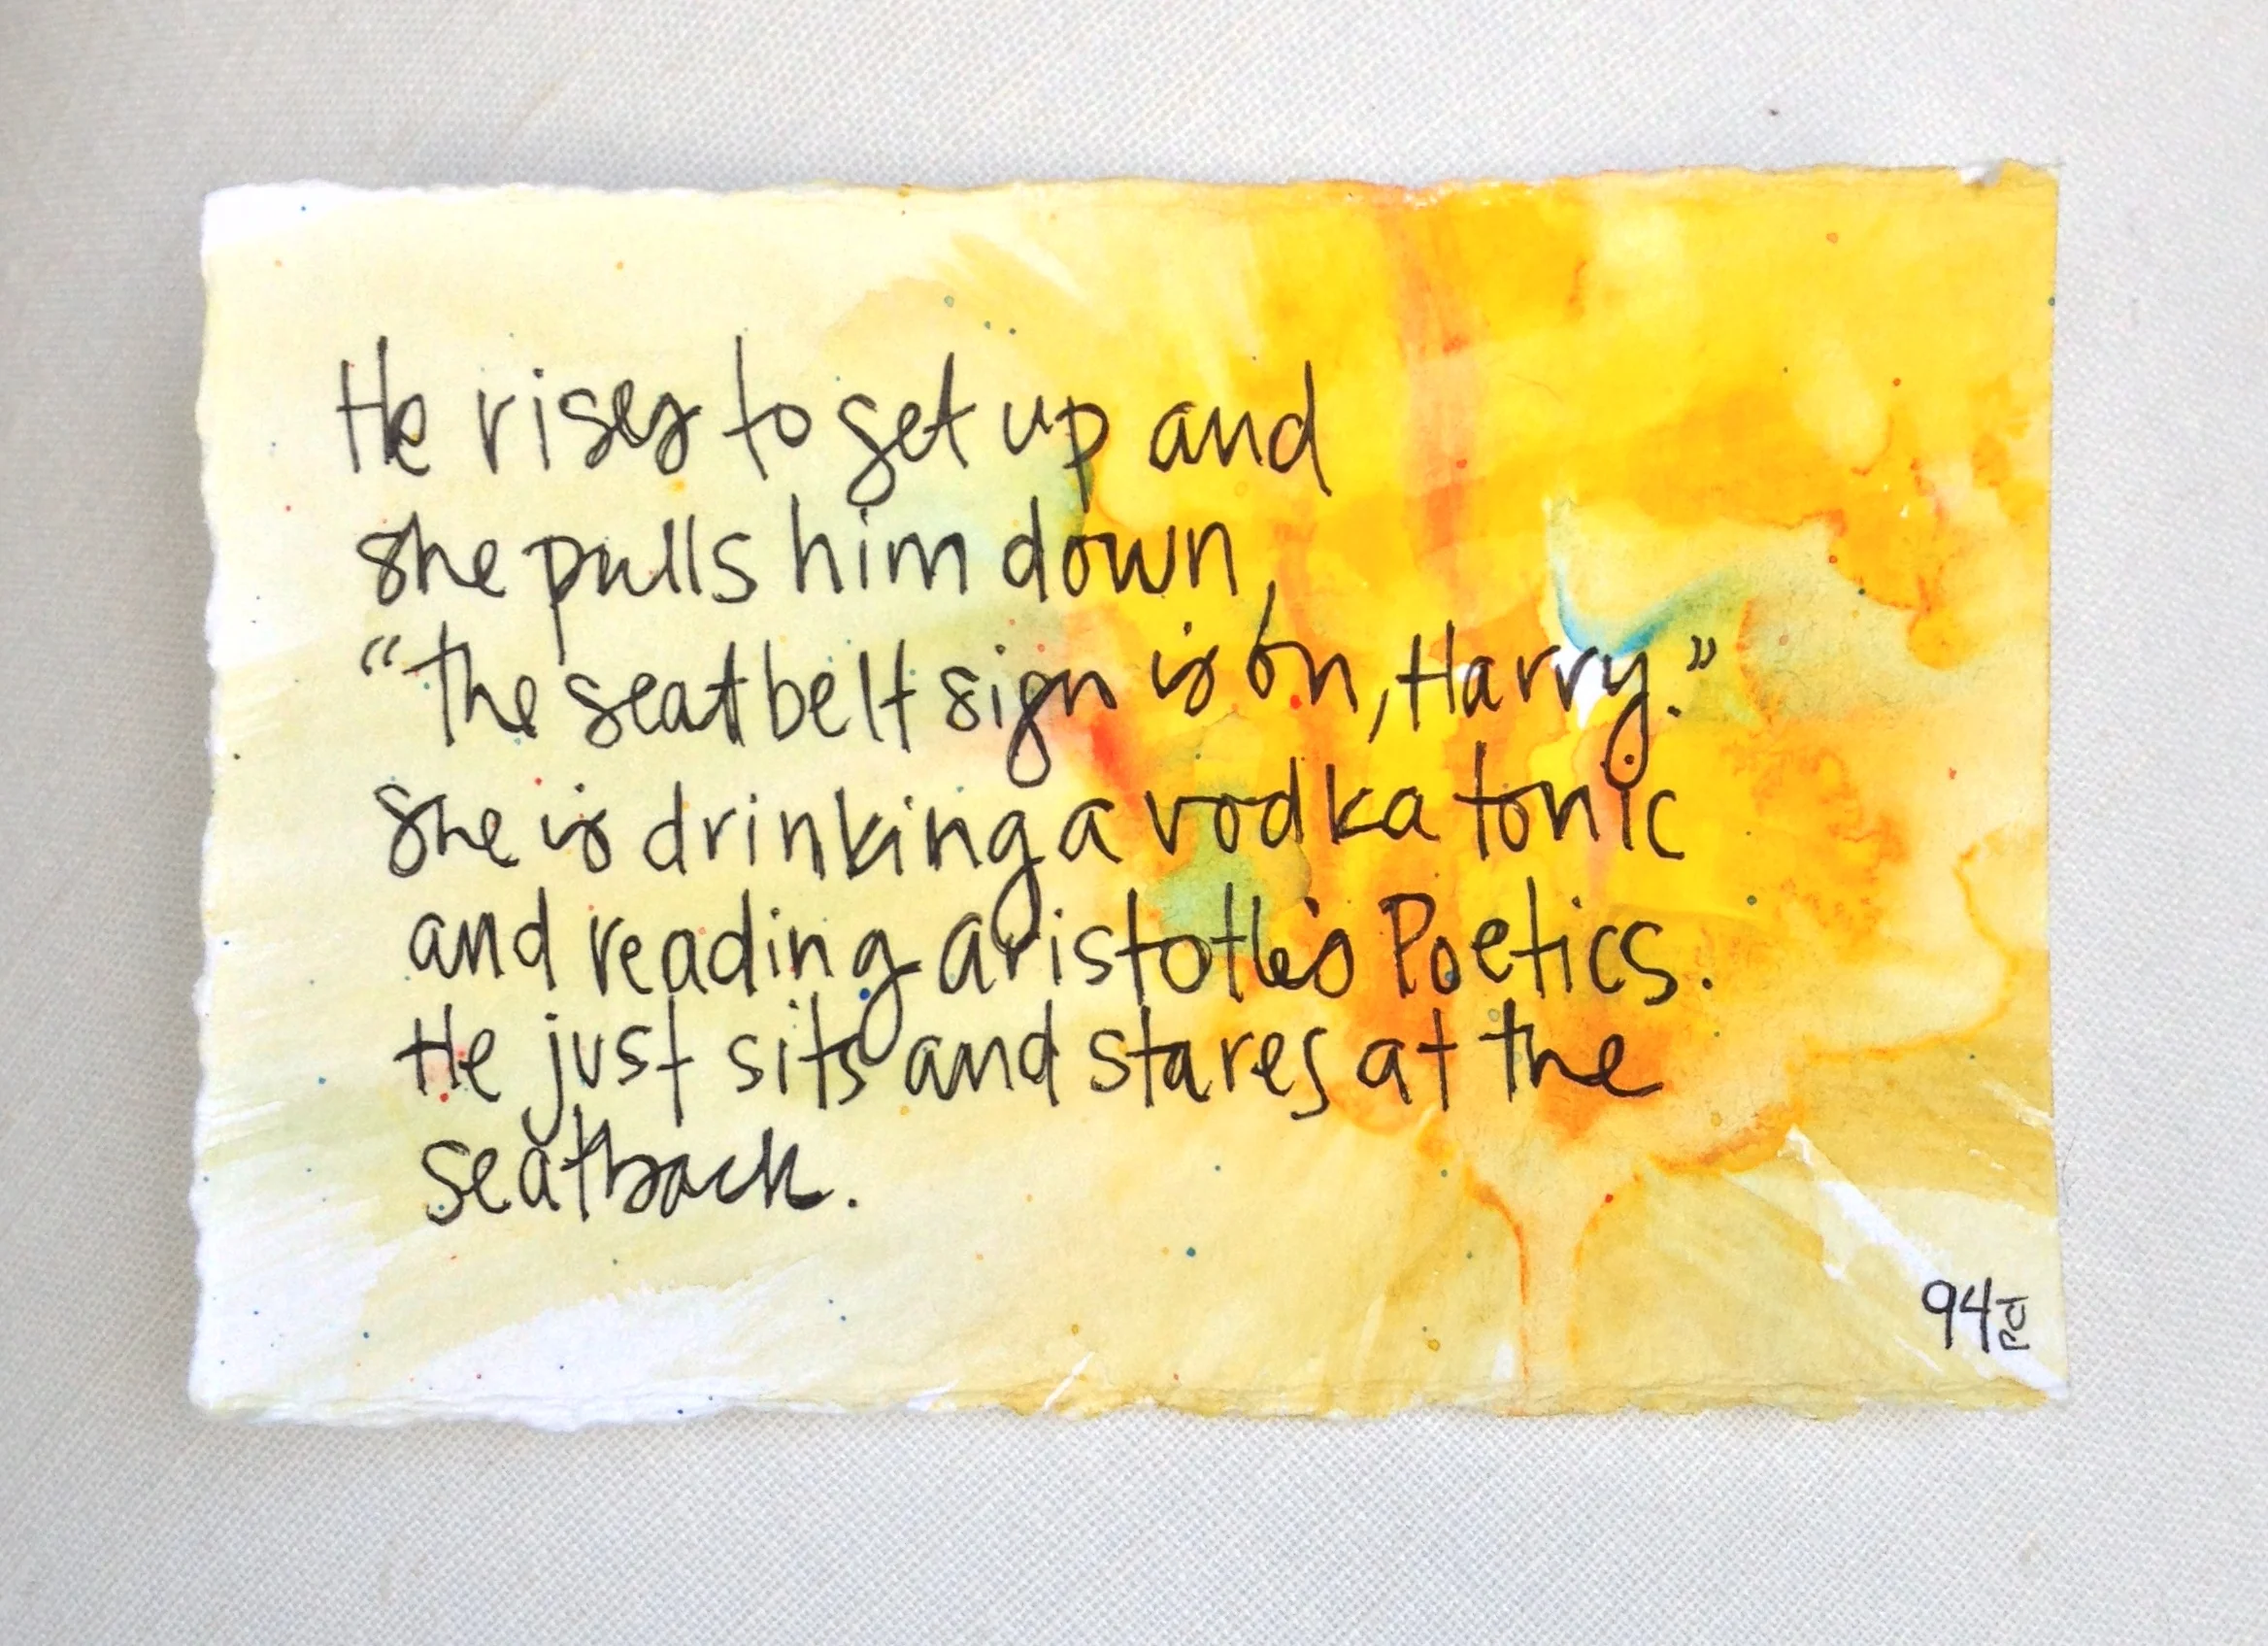 He rises to get up and
she pulls him down,
“the seatbelt sign is on, Harry.”
She is drinking a vodka tonic
and reading aristotle's Poetics.
He just sits and stares at the
seatback.
94